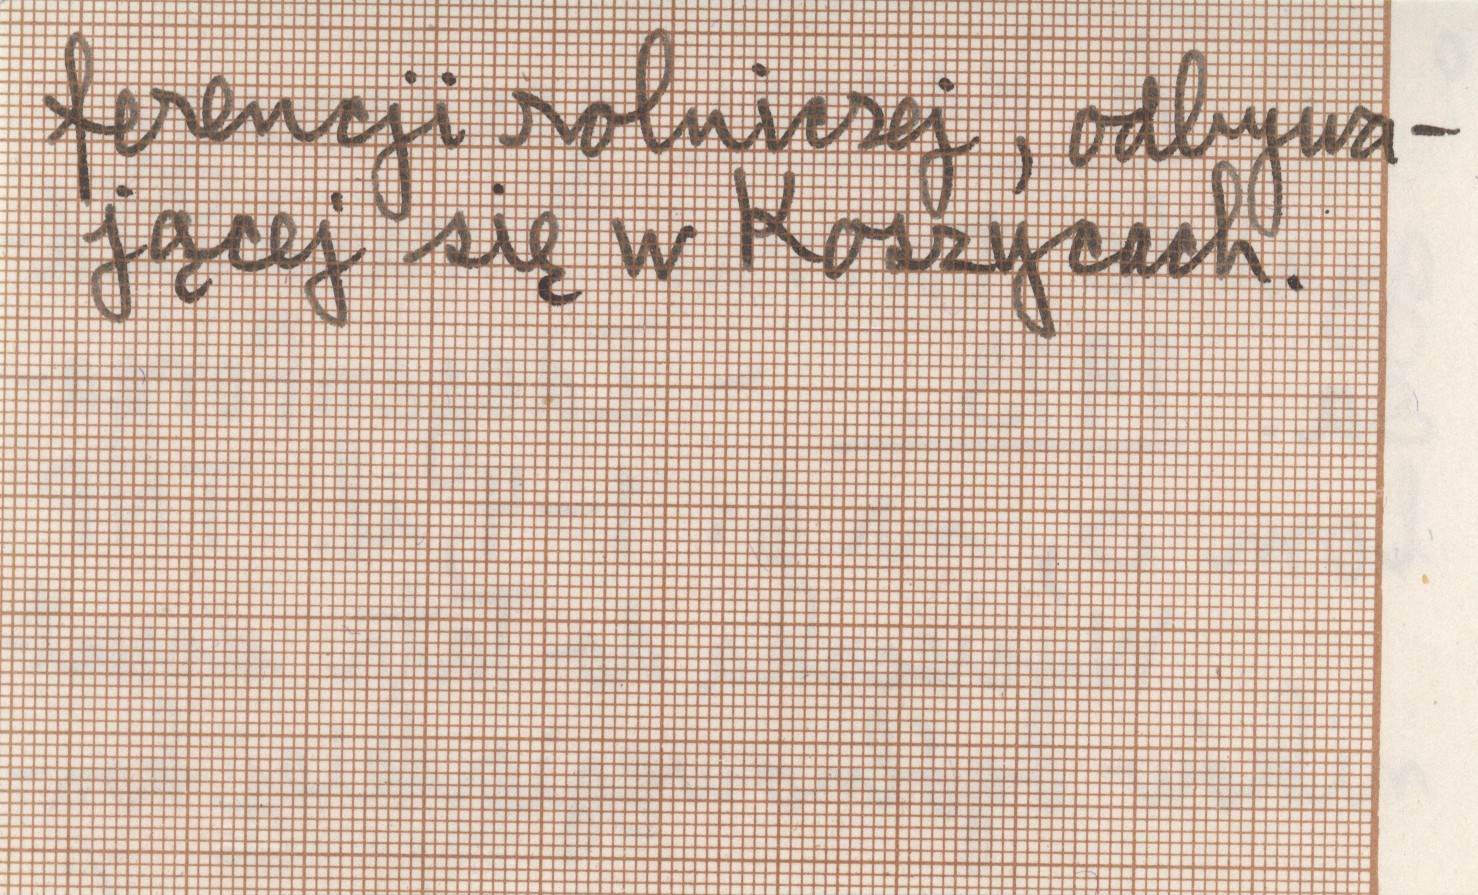 ferencji rolniczej, odbywa-
jącej się w Koszycach.